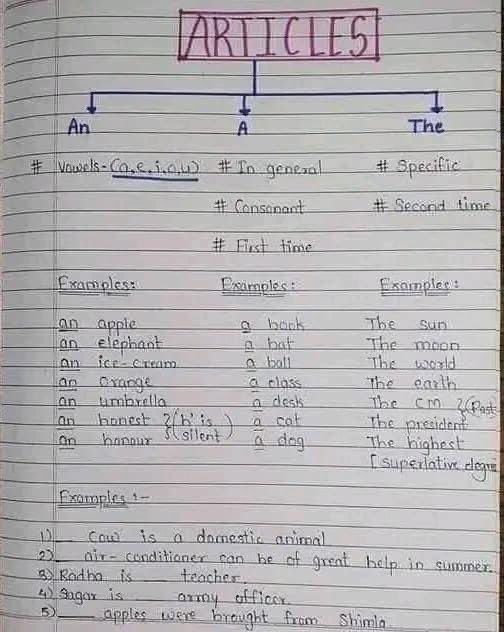 ARTICLES
An A The
# Vowels-(a,e,i,o,u) # In general # Specific
# Consonant # Second time
# First time
Examples: Examples: Examples:
an apple a book The sun
an elephant a bat The moon
an ice-cream a ball The world
an orange a class The earth
an umbrella a desk The CM }(Post
an honest }('h' is a cat The president
an honour silent) a dog The highest
[superlative degre
Examples :-
1) __ Cow is a domestic animal
2) __ air-conditioner can be of great help in summer.
3) Radha is ___ teacher.
4) Sagar is ___ army officer.
5) ___ apples were brought from Shimla